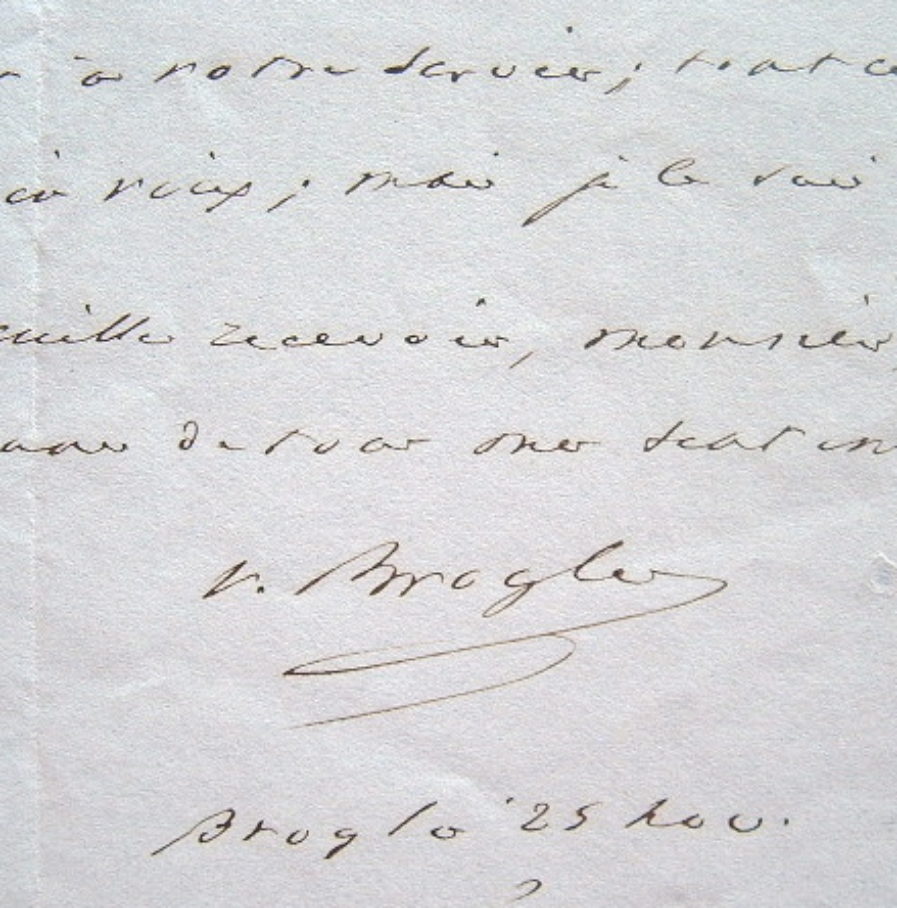 à votre service ; tout ce
vieux ; mais je le suis
euille recevoir, monsieur,
de tous mes sentim
V. Broglie
Broglie 25 nov.